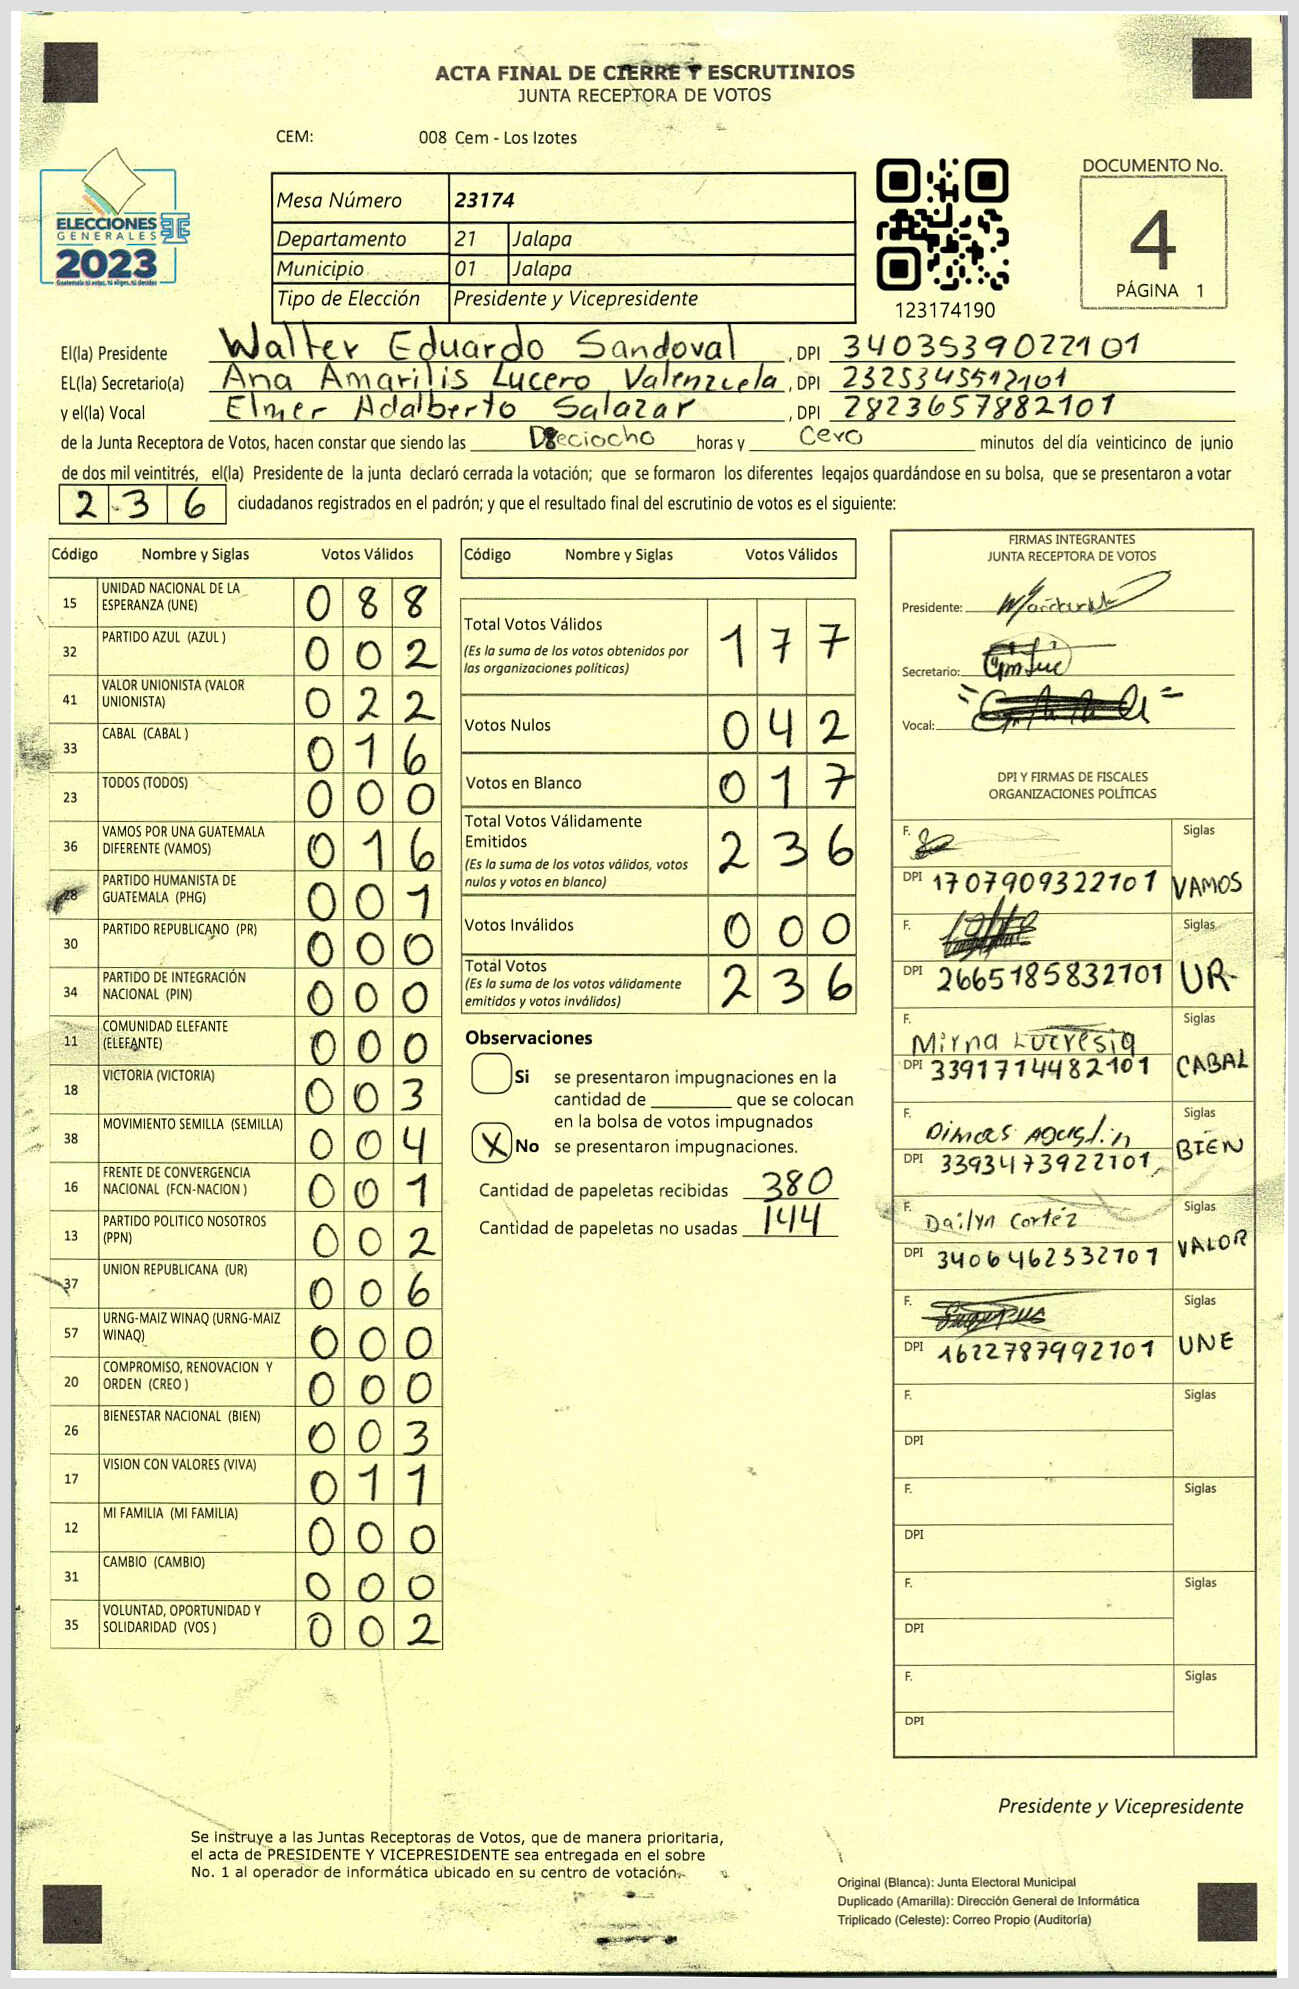 ACTA FINAL DE CIERRE Y ESCRUTINIOS
JUNTA RECEPTORA DE VOTOS
CEM: 008 Cem - Los Izotes
ELECCIONES
GENERALES
2023
Guatemala tú votas, tú eliges, tú decides
Mesa Número 23174
Departamento 21 Jalapa
Municipio 01 Jalapa
Tipo de Elección Presidente y Vicepresidente
123174190
DOCUMENTO No.
4
PÁGINA 1
El(la) Presidente Walter Eduardo Sandoval, DPI 3403539022101
EL(la) Secretario(a) Ana Amarilis Lucero Valenzuela, DPI 2325345512101
y el(la) Vocal Elmer Adalberto Salazar, DPI 2823657882101
de la Junta Receptora de Votos, hacen constar que siendo las Dieciocho horas y Cero minutos del día veinticinco de junio
de dos mil veintitrés, el(la) Presidente de la junta declaró cerrada la votación; que se formaron los diferentes legajos guardándose en su bolsa, que se presentaron a votar
236 ciudadanos registrados en el padrón; y que el resultado final del escrutinio de votos es el siguiente:
Código Nombre y Siglas Votos Válidos
15 UNIDAD NACIONAL DE LA ESPERANZA (UNE) 088
32 PARTIDO AZUL (AZUL ) 002
41 VALOR UNIONISTA (VALOR UNIONISTA) 022
33 CABAL (CABAL ) 016
23 TODOS (TODOS) 000
36 VAMOS POR UNA GUATEMALA DIFERENTE (VAMOS) 016
28 PARTIDO HUMANISTA DE GUATEMALA (PHG) 001
30 PARTIDO REPUBLICANO (PR) 000
34 PARTIDO DE INTEGRACIÓN NACIONAL (PIN) 000
11 COMUNIDAD ELEFANTE (ELEFANTE) 000
18 VICTORIA (VICTORIA) 003
38 MOVIMIENTO SEMILLA (SEMILLA) 004
16 FRENTE DE CONVERGENCIA NACIONAL (FCN-NACION ) 001
13 PARTIDO POLITICO NOSOTROS (PPN) 002
37 UNION REPUBLICANA (UR) 006
57 URNG-MAIZ WINAQ (URNG-MAIZ WINAQ) 000
20 COMPROMISO, RENOVACION Y ORDEN (CREO ) 000
26 BIENESTAR NACIONAL (BIEN) 003
17 VISION CON VALORES (VIVA) 011
12 MI FAMILIA (MI FAMILIA) 000
31 CAMBIO (CAMBIO) 000
35 VOLUNTAD, OPORTUNIDAD Y SOLIDARIDAD (VOS ) 002
Código Nombre y Siglas Votos Válidos
Total Votos Válidos 177
(Es la suma de los votos obtenidos por
las organizaciones políticas)
Votos Nulos 042
Votos en Blanco 017
Total Votos Válidamente
Emitidos 236
(Es la suma de los votos válidos, votos
nulos y votos en blanco)
Votos Inválidos 000
Total Votos 236
(Es la suma de los votos válidamente
emitidos y votos inválidos)
Observaciones
Si se presentaron impugnaciones en la
cantidad de ________ que se colocan
en la bolsa de votos impugnados
X No se presentaron impugnaciones.
Cantidad de papeletas recibidas 380
Cantidad de papeletas no usadas 144
FIRMAS INTEGRANTES
JUNTA RECEPTORA DE VOTOS
Presidente:
Secretario:
Vocal:
DPI Y FIRMAS DE FISCALES
ORGANIZACIONES POLÍTICAS
F. Siglas
DPI 1707909322101 VAMOS
F. Siglas
DPI 2665185832101 UR
F. Mirna Lucresia Siglas
DPI 3391714482101 CABAL
F. Dimas Agustin Siglas
DPI 3393473922101 BIEN
F. Dailyn Cortéz Siglas
DPI 3406462332101 VALOR
F. Siglas
DPI 1622787992101 UNE
F. Siglas
DPI
F. Siglas
DPI
F. Siglas
DPI
F. Siglas
DPI
Presidente y Vicepresidente
Se instruye a las Juntas Receptoras de Votos, que de manera prioritaria,
el acta de PRESIDENTE Y VICEPRESIDENTE sea entregada en el sobre
No. 1 al operador de informática ubicado en su centro de votación.
Original (Blanca): Junta Electoral Municipal
Duplicado (Amarilla): Dirección General de Informática
Triplicado (Celeste): Correo Propio (Auditoría)